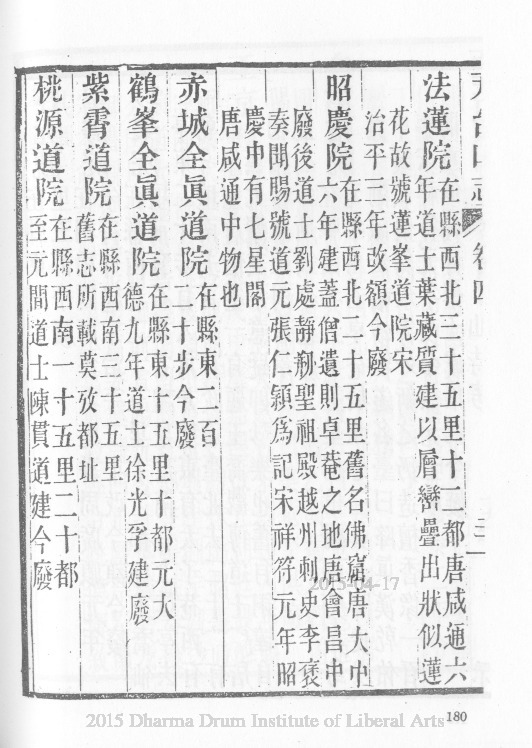 天台山志 卷四
法蓮院 在縣西北三十五里十二都唐咸通六
年道士葉藏質建以層巒疊出狀似蓮
花故號蓮峯道院宋
治平三年改額今廢
昭慶院 在縣西北二十五里舊名佛窟唐大中
六年建蓋僧遺則卓菴之地唐會昌中
廢後道士劉處靜剏聖祖殿越州刺史李褒
奏聞賜號道元張仁頴爲記宋祥符元年昭
慶中有七星閣
唐咸通中物也
赤城全眞道院 在縣東二百
二十步今廢
鶴峯全眞道院 在縣東十五里十都元大
德九年道士徐光孚建廢
紫霄道院 在縣西南三十五里
舊志所載莫攷都址
桃源道院 在縣西南一十五里二十都
至元間道士陳貫道建今廢
2015-04-17
180
2015 Dharma Drum Institute of Liberal Arts